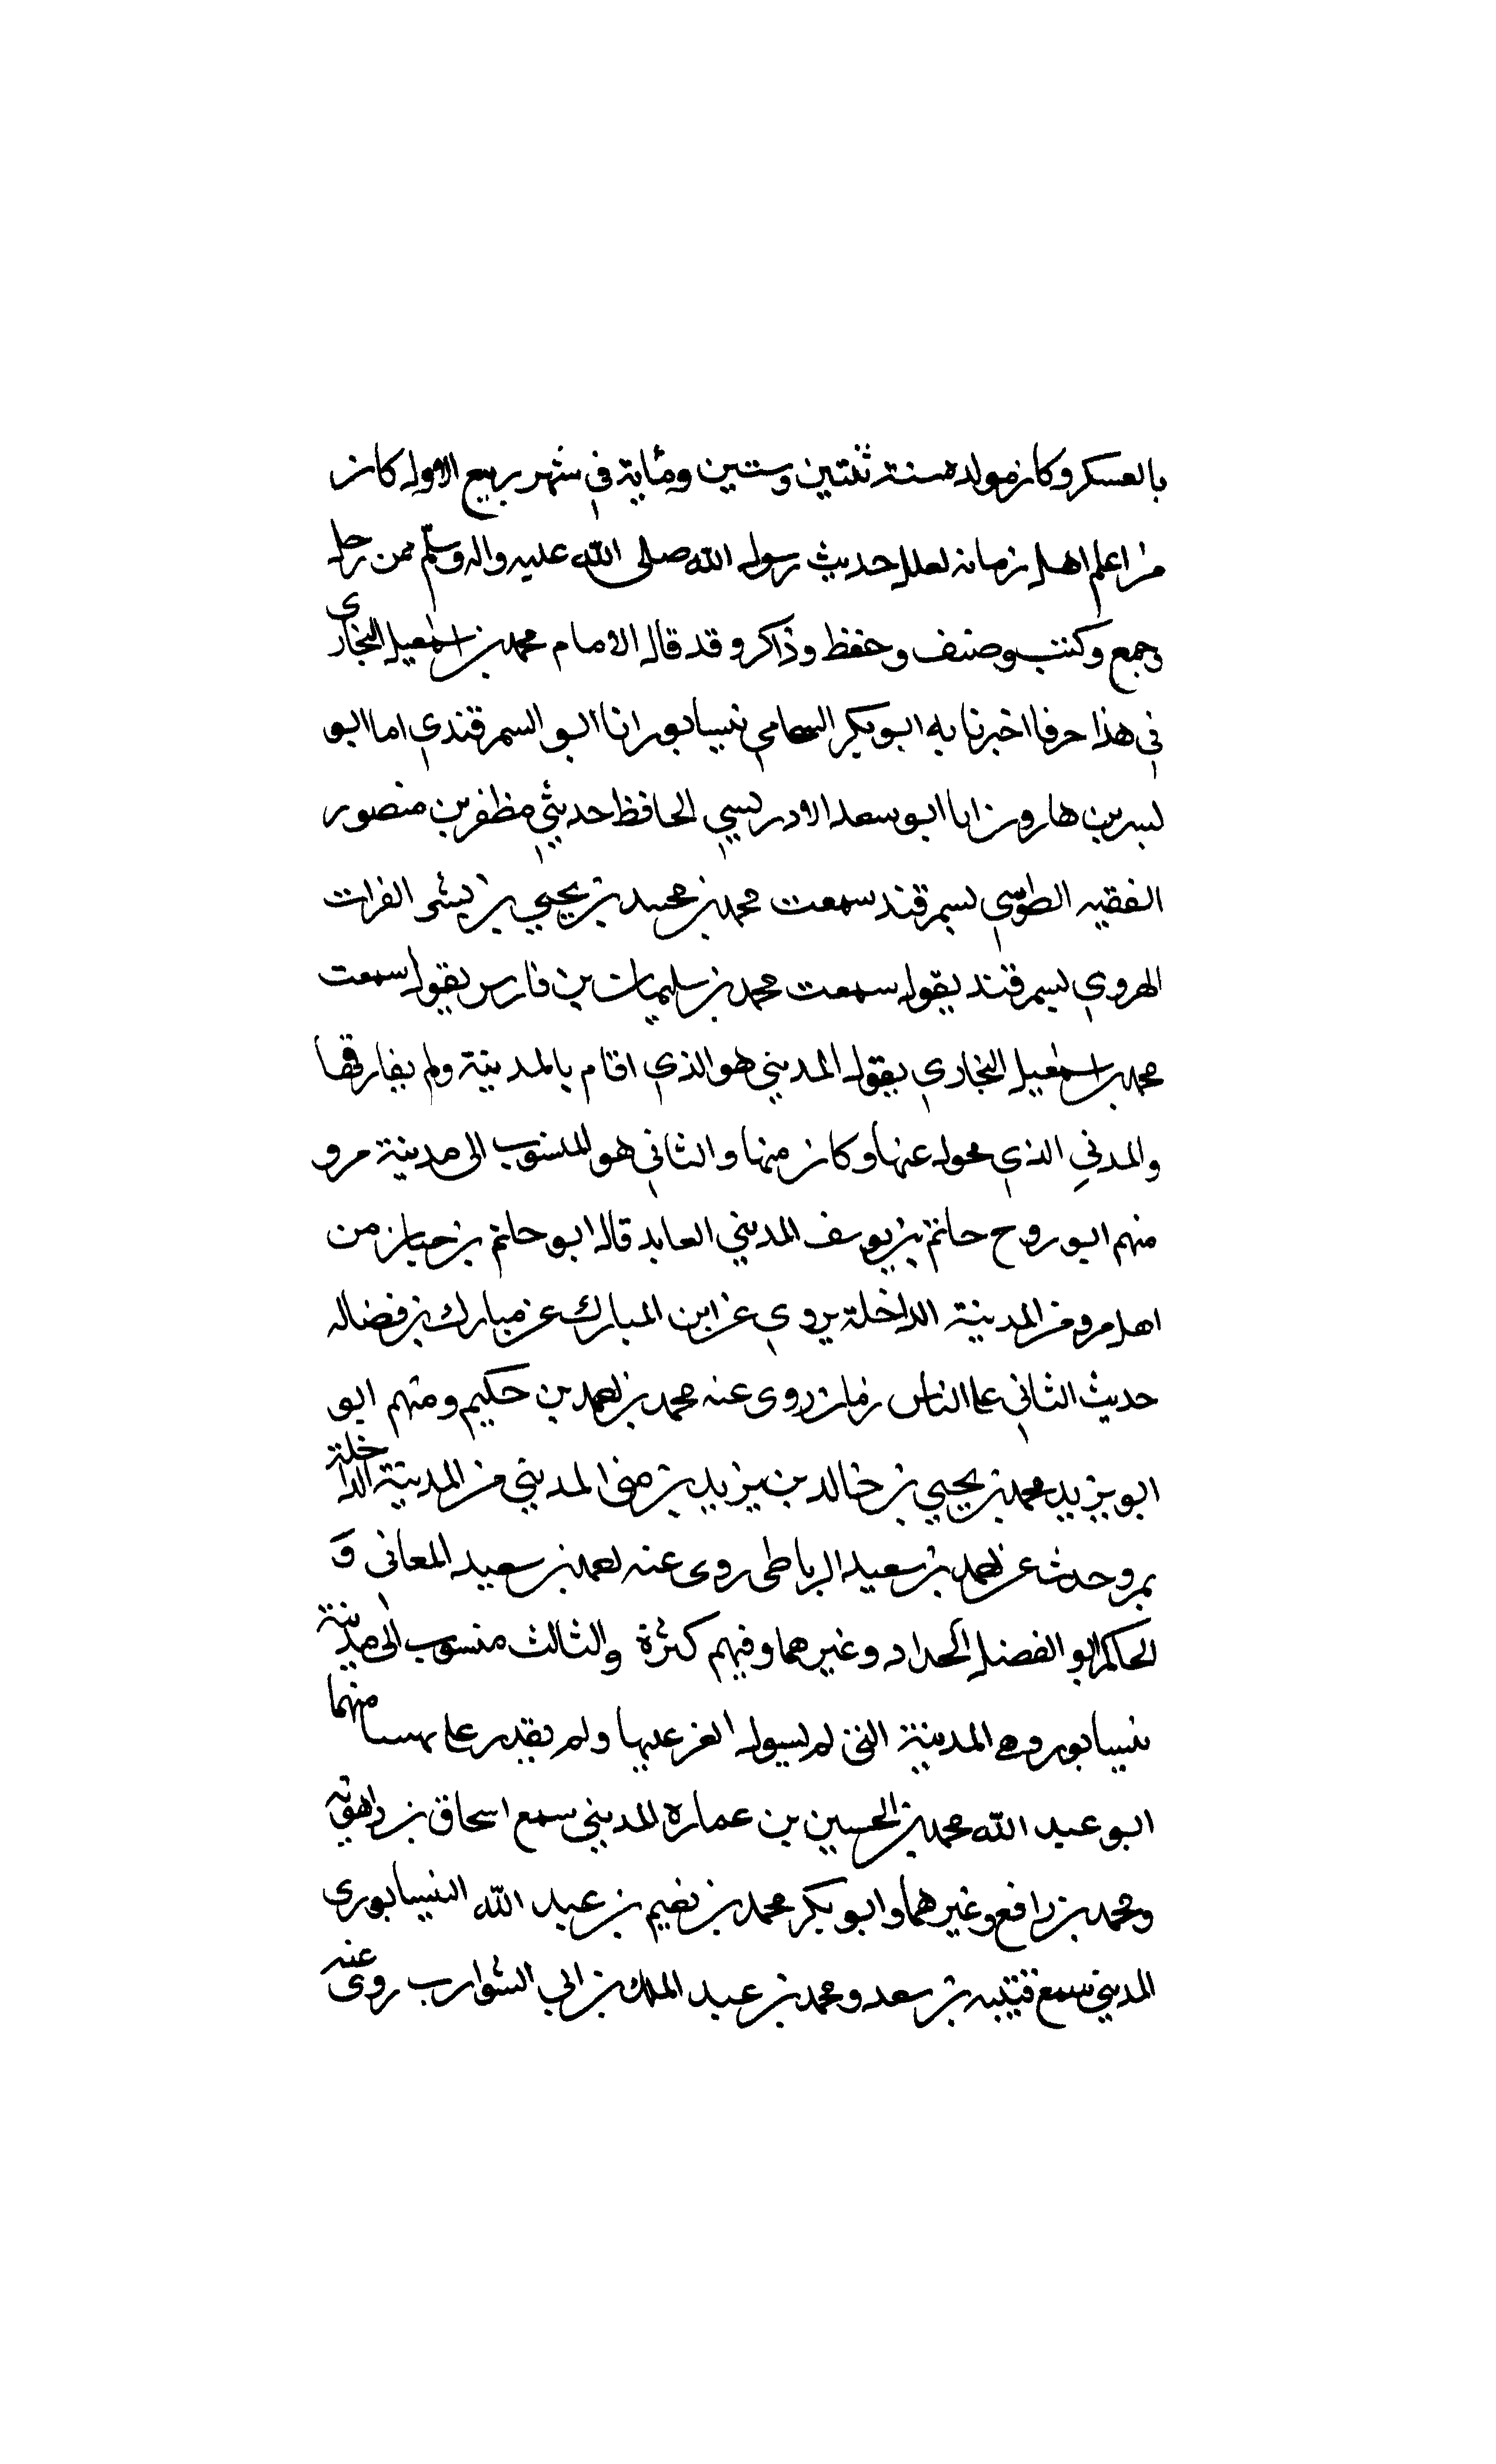 بالعسكر وكان مولده سنة ثنتين وستين ومئاية في شهر ربيع الاول كان
من اعلم اهل زمانه لعلل حديث رسول الله صلى الله عليه واله وسلم ممن رحل
وجمع وكتب وصنف وحفظ وذاكر وقد قال الامام محمد بن اسمعيل البخاري
في هذا حرفا اخبرنا به ابو بكر السحامي نيسابور انا ابو السمرقندي اما ابو
لبسر بن هارون انا ابو سعد الادريسي الحافظ حديثي مظفر بن منصور
الفقيه الطوسي بسمرقند سمعت محمد بن عبد بن يحيي بن بشر الفرات
الهروي بسمرقند يقول سمعت محمد بن سليمان بن فارس يقول سمعت
محمد بن اسمعيل البخاري يقول المديني هو الذي اقام بالمدينة ولم يفارقها
والمدني الذي محول عنها وكان منها والثاني هو المنسوب الى مدينة مرو
منهم ابو روح حاتم بن يوسف المديني العابد قال ابو حاتم بن حبان من
اهل مرو من المدينة الداخلة يروي عن ابن المبارك عن مبارك بن فضاله
حديث الثاني على الناس زمان روى عنه محمد بن احمد بن حكيم ومنهم ابو
ابو يزيد محمد بن يحيي بن خالد بن يزيد بن متى المديني من المدينة الداخلة
بمرو حدث عن احمد بن سعيد الرباطى روى عنه احمد بن سعيد المعانى و
الحاكم ابو الفضل الحداد وغيرهما وفيهم كثرة والثالث منسوب الى مدينة
نيسابور وهي المدينة التي لم يسول الغز عليها ولم يقدر على منهما
ابو عبد الله محمد بن الحسين بن عمارة المديني سمع اسحاق بن راهويه
ومحمد بن رافع وغيرهما وابو بكر محمد بن نعيم بن عبد الله النيسابورى
المديني سمع قتيبه بن سعد ومحمد بن عبد الملك بن ابي الشوارب روى عنه